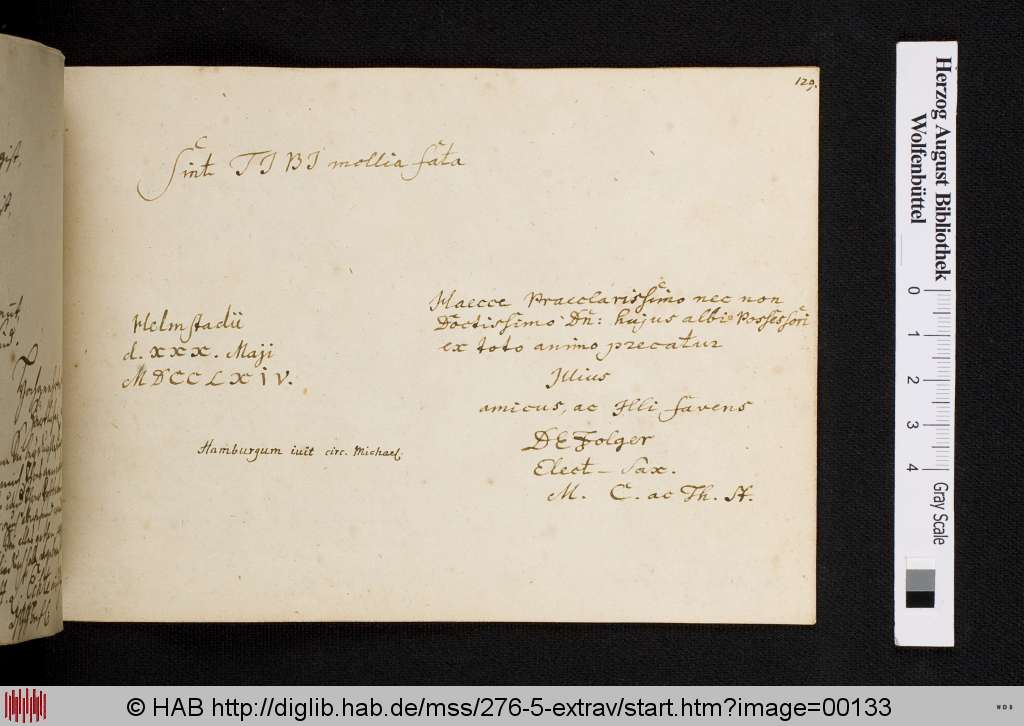 129.
Sint TIBI mollia fata
Haecce Praeclarissimo nec non
Doctissimo Dn: hujus albi Possessori
ex toto animo precatur
Illius
amicus, ac Illi favens
D E Folger
Elect - Sax.
M. C. ac Th. St.
Helmstadii
d. XXX. Maji
MDCCLXIV.
Hamburgum ivit circ. Michael.
Herzog August Bibliothek
Wolfenbüttel
0
1
2
3
4
Gray Scale
© HAB http://diglib.hab.de/mss/276-5-extrav/start.htm?image=00133